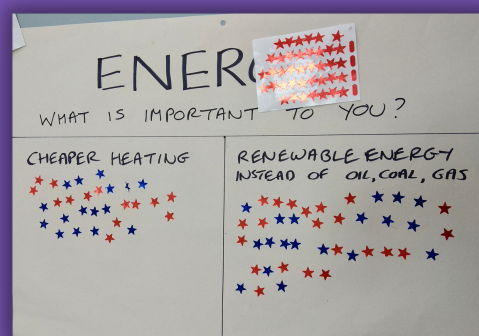 ENERG
WHAT IS IMPORTANT TO YOU?
CHEAPER HEATING
RENEWABLE ENERGY
INSTEAD OF OIL, COAL, GAS